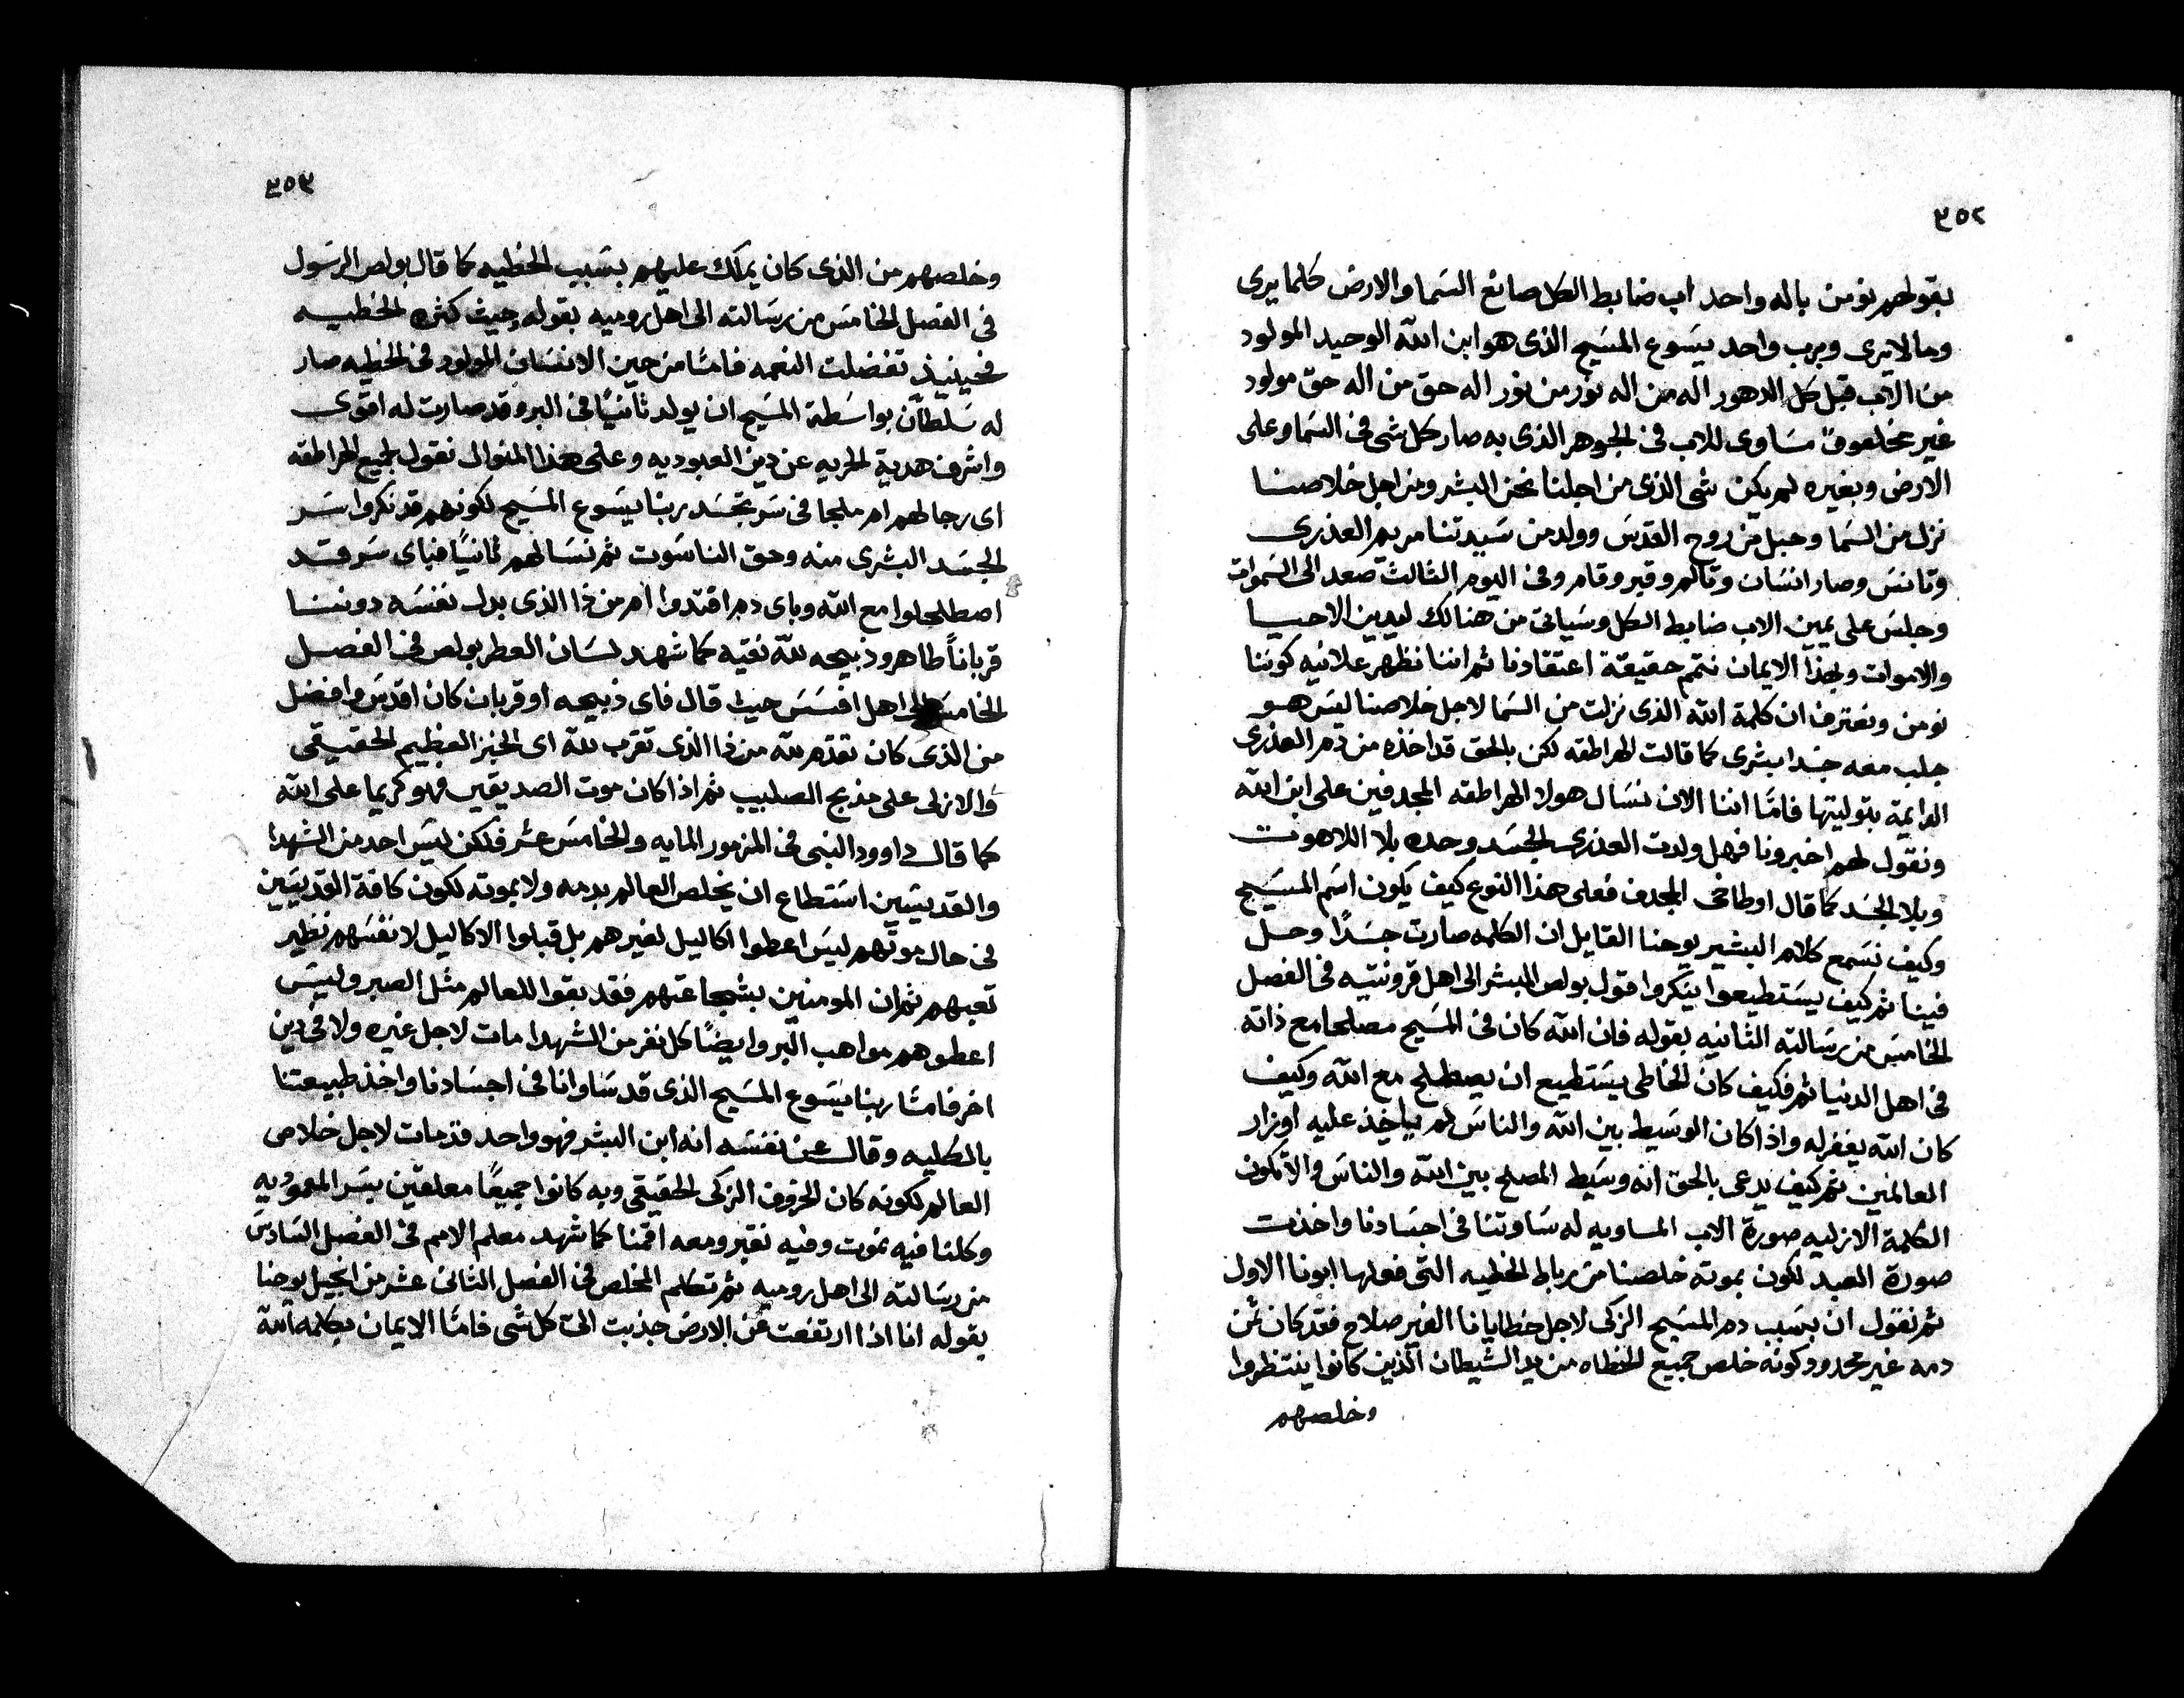 ٣٥٢
بقولهم نومن باله واحد اب ضابط الكل صانع السما والارض كلما يرى
وما لا يرى وبرب واحد يسوع المسيح الذى هو ابن الله الوحيد المولود
من الاب قبل كل الدهور اله من اله نور من نور اله حق من اله حق مولود
غير مخلوق مساوى للاب فى الجوهر الذى به صار كل شى فى السما وعلى
الارض وبغيره لم يكن شى الذى من اجلنا نحن البشر ومن اجل خلاصنا
نزل من السما وحبل من روح القدس وولد من سيدتنا مريم العذرى
وتانس وصار انسان وتالم وقبر وقام وفى اليوم الثالث صعد الى السموات
وجلس على يمين الاب ضابط الكل وسياتى من هنالك ليدين الاحيا
والاموات وبهذا الايمان نتمم حقيقة اعتقادنا ثم اننا نظهر علانيه كوننا
نومن ونعترف ان كلمة الله الذى نزلت من السما لاجل خلاصنا ليس هو
جلب معه جسدا بشرى كما قالت الهراطقه لكن بالحق قد اخذه من دم العذرى
الدايمة بتوليتها فامّا اننا الان نسال هولا الهراطقه المجدفين على ابن الله
ونقول لهم اخبرونا فهل ولدت العذرى الجسد وحده بلا اللاهوت
وبلا الجسد كما قال اوطاخى المجدف فعلى هذا النوع كيف يكون اسم المسيح
وكيف نسمع كلام البشير يوحنا القايل ان الكلمه صارت جسدًا وحل
فينا ثم كيف يستطيعوا ينكروا قول بولص المبشر الى اهل قرونتيه فى الفصل
الخامس من رسالته الثانيه بقوله فان الله كان فى المسيح مصلحا مع ذاته
فى اهل الدنيا ثم فكيف كان الخاطى يستطيع ان يصطلح مع الله وكيف
كان الله يغفر له واذا كان الوسيط بين الله والناس لم ياخذ عليه اوزار
العالمين ثم كيف يدعى بالحق انه وسيط المصلح بين الله والناس والا تكون
الكلمة الازليه صورة الاب المساويه له ساوتنا فى اجسادنا واخذت
صورة العبد لكون بموته خلصنا من رباط الخطيه التى فعلها ابونا الاول
ثم نقول ان بسبب دم المسيح الزكى لاجل خطايانا الغير صلاح فقد كان ثمن
دمه غير محدود كونه خلص جميع الخطاه من يد الشيطان الذين كانوا ينتظروا
وخلصهم
٣٥٣
وخلصهم من الذى كان يملك عليهم بسبب الخطيه كما قال بولص الرسول
فى الفصل الخامس من رسالته الى اهل روميه بقوله حيث كثره الخطيه
فحينيذ تفضلت النعمه فامّا من حين الانسان المولود فى الخطيه صار
له سلطان بواسطة المسيح ان يولد ثانيًا فى البر وقد صارت له اقوى
واشرف هدية الحريه عن دين العبوديه وعلى هذا المنوال نقول لجميع الهراطقه
اى رجا لهم ام ملجا فى سر تجسد ربنا يسوع المسيح لكونهم قد نكروا سر
الجسد البشرى منه وحق الناسوت ثم نسالهم ثانيًا فباى سر قد
اصطلحوا مع الله وباى دم اقتدوا ام من ذا الذى بدل نفسه دوننا
قرباناً طاهر وذبيحه لله نقيه كما شهد لسان العطر بولص فى الفصل
الخامس الى اهل افسس حيث قال فاى ذبيحه او قربان كان اقدس وافضل
من الذى كان تقدم لله من ذا الذى تقرب لله اى الخبز العظيم الحقيقى
والازلى على مذبح الصليب ثم اذا كان موت الصديقين فهو كريما على الله
كما قال داوود النبى فى المزمور المايه والخامس عشر فلكن ليس احد من الشهدا
والقديسين استطاع ان يخلص العالم بدمه ولا بموته لكون كافة القديسين
فى حال موتهم ليس اعطوا اكاليل لغيرهم بل قبلوا الاكاليل لانفسهم نظير
تعبهم ثم ان المومنين بشجاعتهم فقد بقوا للعالم مثل الصبر وليس
اعطوهم مواهب البر وايضًا كل نفر من الشهدا مات لاجل غيره ولا فى دين
اخر فامّا ربنا يسوع المسيح الذى قد ساوانا فى اجسادنا واخذ طبيعتنا
بالكليه وقال عن نفسه انه ابن البشر فهو واحد قد مات لاجل خلاص
العالم لكونه كان الخروف الزكى الحقيقى وبه كانوا جميعًا معلقين بسر المعموديه
وكلنا فيه نموت وفيه نقبر ومعه اقمنا كما شهد معلم الامم فى الفصل السادس
من رسالته الى اهل روميه ثم تكلم المخلص فى الفصل الثانى عشر من انجيل يوحنا
بقوله انا اذا ارتفعت عن الارض جذبت الىّ كل شى فامّا الايمان بكلمة الله